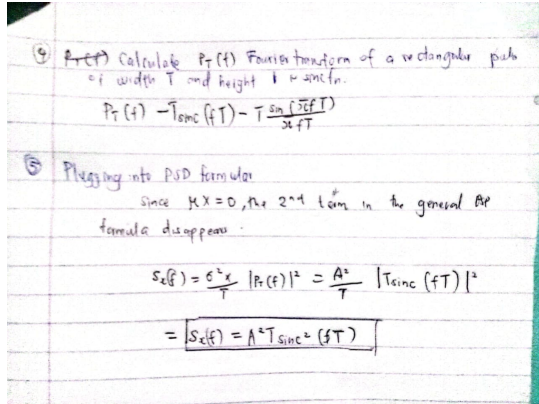 ④ P_T(f) Calculate P_T(f) Fourier transform of a rectangular puls
of width T and height 1 is sinc fn.
P_T(f) - T sinc (fT) - T sin (πfT) / πfT
⑤ Plugging into PSD formular
since μx = 0, the 2nd term in the general PSD
formula disappears.
Sx(f) = σ²x / T |P_T(f)|² = A² / T |T sinc (fT)|²
= Sx(f) = A²T sinc² (fT)